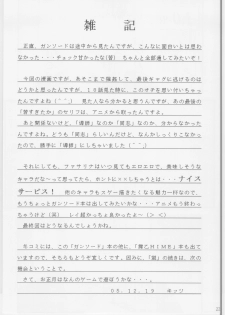 雑記
正直、ガンソードは途中から見たんですが、こんなに面白いとは思わ
なかった・・・チェック甘かったな(苦) ちゃんと全部通してみたいぞ!
今回の漫画ですが、あそこまで陵辱して、最後ギャグに逃げるのはど
うだろうと思ったんですが、１８話見た時に、このオチを思い付いちゃっ
たんですよね(＾＾;) 見た人なら分かると思うんですが、あの最後の
「脅すため」のセリフは、アニメから取ったんですよ。
あと関係ないけど、「導師」なのか「同志」なのか、分からなかった
んですよね。どうも「同志」らしいんだけど、なんかしっくりこなくっ
て、勝手に「導師」にしちゃいました(＾＾;)
それにしても、ファサリナはいつ見てもエロエロで、美味しそうな
キャラだなぁ～って思ってたら、ホントに××しちゃうとは・・・ナイス
サービス! 他のキャラもスゲー描きたくなる魅力一杯なので、
もうちょっとガンソード本は出してみたいかな。・・・アニメもう終わっ
ちゃうけど(笑) レイ超かっちょ良かったよー(＞＜)
最終回はどうなるんでしょうかね。
冬コミには、この「ガンソード」本の他に、「舞乙HiME」本も出て
いますので、そちらもどうぞ宜しくです。因みに「龍」の続きは、次の
機会ということで。
さて、お正月はなんのゲームで遊ぼうかなー。
05.12.19 キッツ